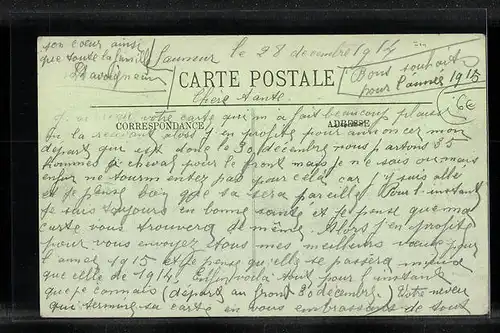 son cœur ainsi
que toute la famille
Saumur le 28 décembre 1914
CARTE POSTALE
Bons souhaits
pour l'année 1915
Chère Tante
6€
J'ai reçu votre carte qui m'a fait beaucoup plaisir
CORRESPONDANCE
ADRESSE
en la recevant j'en profite pour annoncer mon
départ qui est donc le 30 décembre nous partons 35
hommes à cheval pour le front mais je ne sais ou mais
enfin ne tourmentez pas pour cela car j'y suis allé
et je pense bien que sa sera pareille Pour l'instant
je suis toujours en bonne santé et je pense que ma
carte vous trouvera de même. Alors j'en profite
pour vous envoyez tous mes meilleurs vœux pour
l'année 1915 et je pense qu'elle se passera mieux
que celle de 1914. Enfin voilà tout pour l'instant
que je connais (départ au front 30 décembre) Votre neveu
qui termine sa carte en vous embrassant de tout